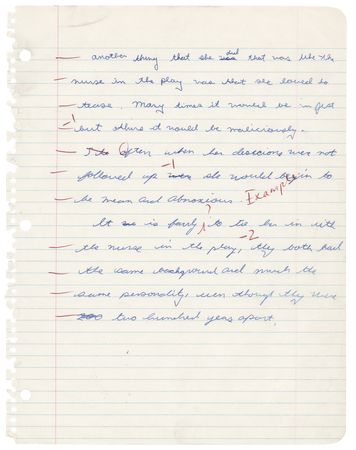 another thing that she did that was like the
nurse in the play was that she loved to
tease. Many times it would be in jest
-1 but others it would be maliciously.
Often when her decisions were not
-1
followed up she would begin to
be mean and abnoxious. Example?
It is fairly to tie her in with
-2
the nurse in the play, they both had
the same background and much the
same personality, even though they were
two hundred years apart.